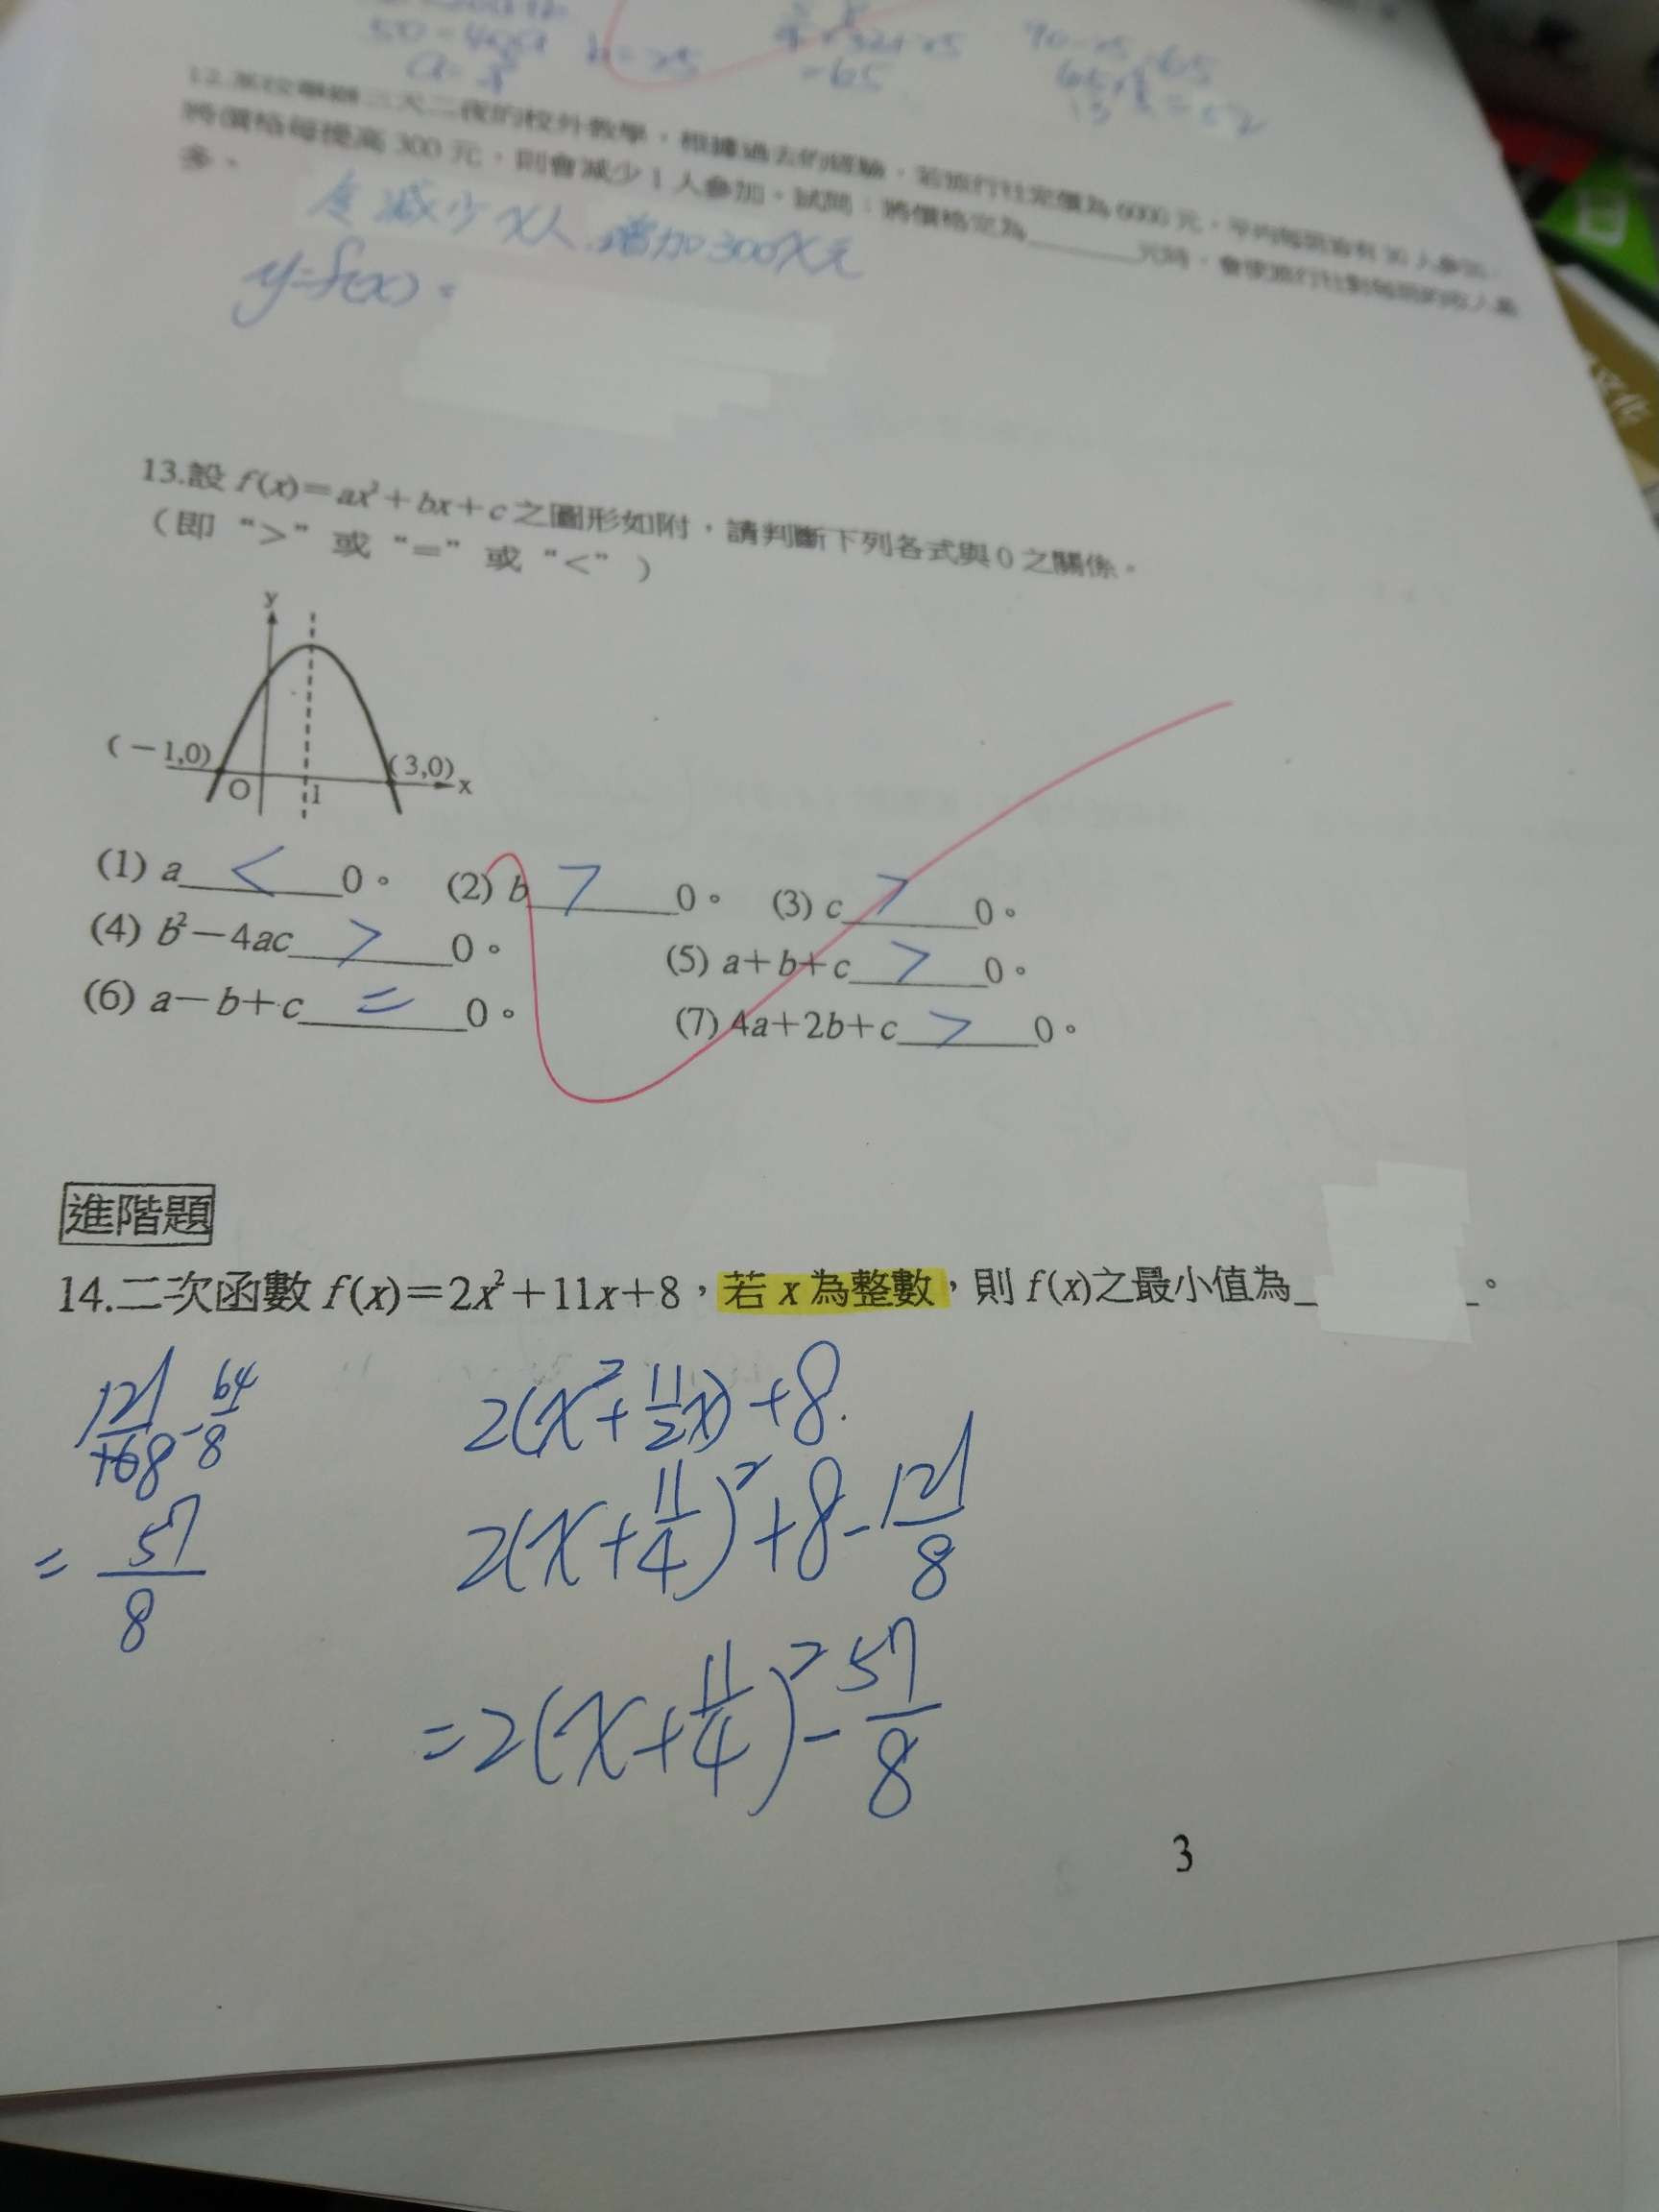 50=400a b=25
=65
90-25=65
12.某校舉辦三天二夜的校外教學，根據過去的經驗，若旅行社定價為6000元，平均每班會有30人參加，
將價格每提高300元，則會減少1人參加。試問：將價格定為______元時，會使旅行社對每班的收入最
多。
令減少x人,增加300x元
y=f(x)=
13.設 f(x)=ax²+bx+c之圖形如附，請判斷下列各式與0之關係。
（即“>”或“=”或“<”）
y
(－1,0)
(3,0)
O
1
x
(1) a < 0。 (2) b > 0。 (3) c > 0。
(4) b²－4ac > 0。 (5) a＋b＋c > 0。
(6) a－b＋c = 0。 (7) 4a＋2b＋c > 0。
進階題
14.二次函數 f(x)=2x²+11x+8，若 x 為整數，則 f(x)之最小值為_ _。
2(x²+11/2x)+8.
2(x+11/4)²+8-121/8
=57/8
=2(x+11/4)²-57/8
3